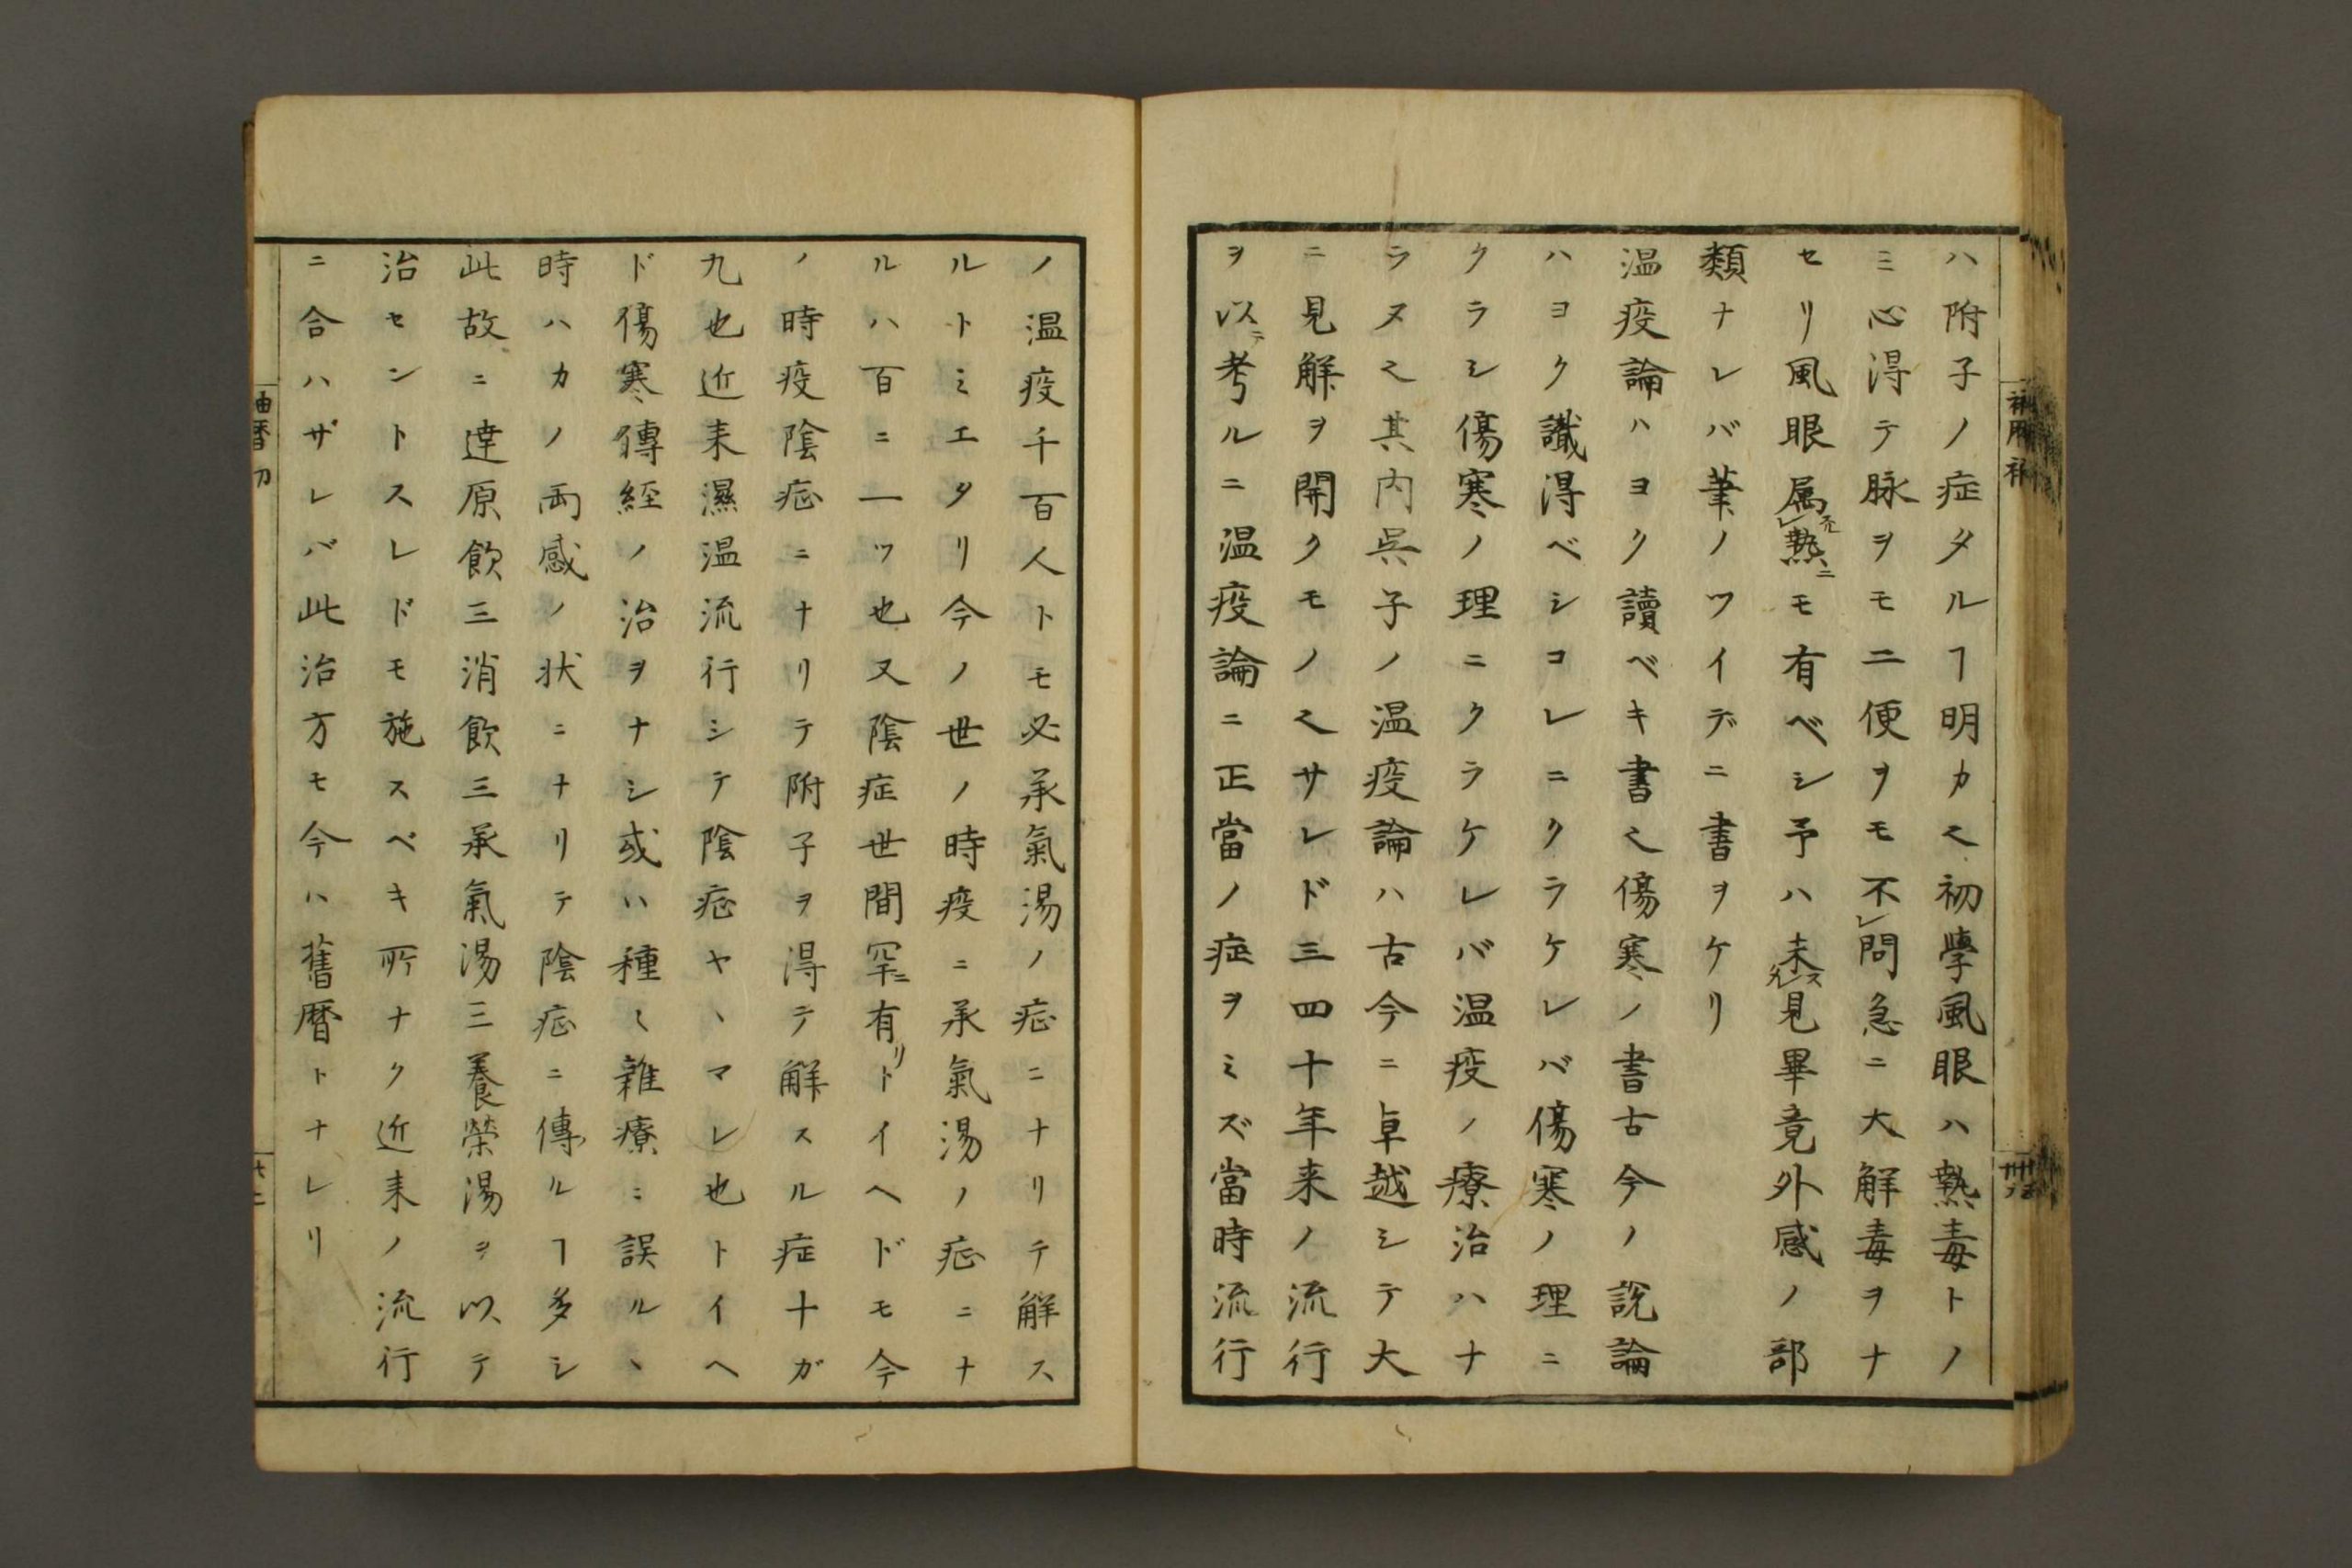 ハ附子ノ症タルヿ明カ〆初學風眼ハ熱毒トノ
ミ心得テ脉ヲモ二便ヲモ不レ問急ニ大解毒ヲナ
セリ風眼属レ熱ニモ有ベシ予ハ未見畢竟外感ノ部
類ナレバ筆ノツイデニ書ヲケリ
温疫論ハヨク讀ベキ書也傷寒ノ書古今ノ説論
ハヨク識得ベシコレニクラケレバ傷寒ノ理ニ
クラシ傷寒ノ理ニクラケレバ温疫ノ療治ハナ
ラヌ也其内呉子ノ温疫論ハ古今ニ卓越シテ大
ニ見解ヲ開クモノ也サレド三四十年来ノ流行
ヲ以ニ考ルニ温疫論ニ正當ノ症ヲミズ當時流行
ノ温疫千百人トモ必承氣湯ノ症ニナリテ解ス
ルトミエタリ今ノ世ノ時疫ニ承氣湯ノ症ニナ
ルハ百ニ一ツ也又陰症世間罕ニ有リトイヘドモ今
ノ時疫陰症ニナリテ附子ヲ得テ解スル症十ガ
九也近来濕温流行シテ陰症ヤヽマレ也トイヘ
ド傷寒傳経ノ治ヲナシ或ハ種〻雜療ニ誤ルヽ
時ハカノ両感ノ状ニナリテ陰症ニ傳ルヿ多シ
此故ニ達原飲三消飲三承氣湯三養榮湯ヲ以テ
治セントスレドモ施スベキ所ナク近来ノ流行
ニ合ハザレバ此治方モ今ハ舊暦トナレリ